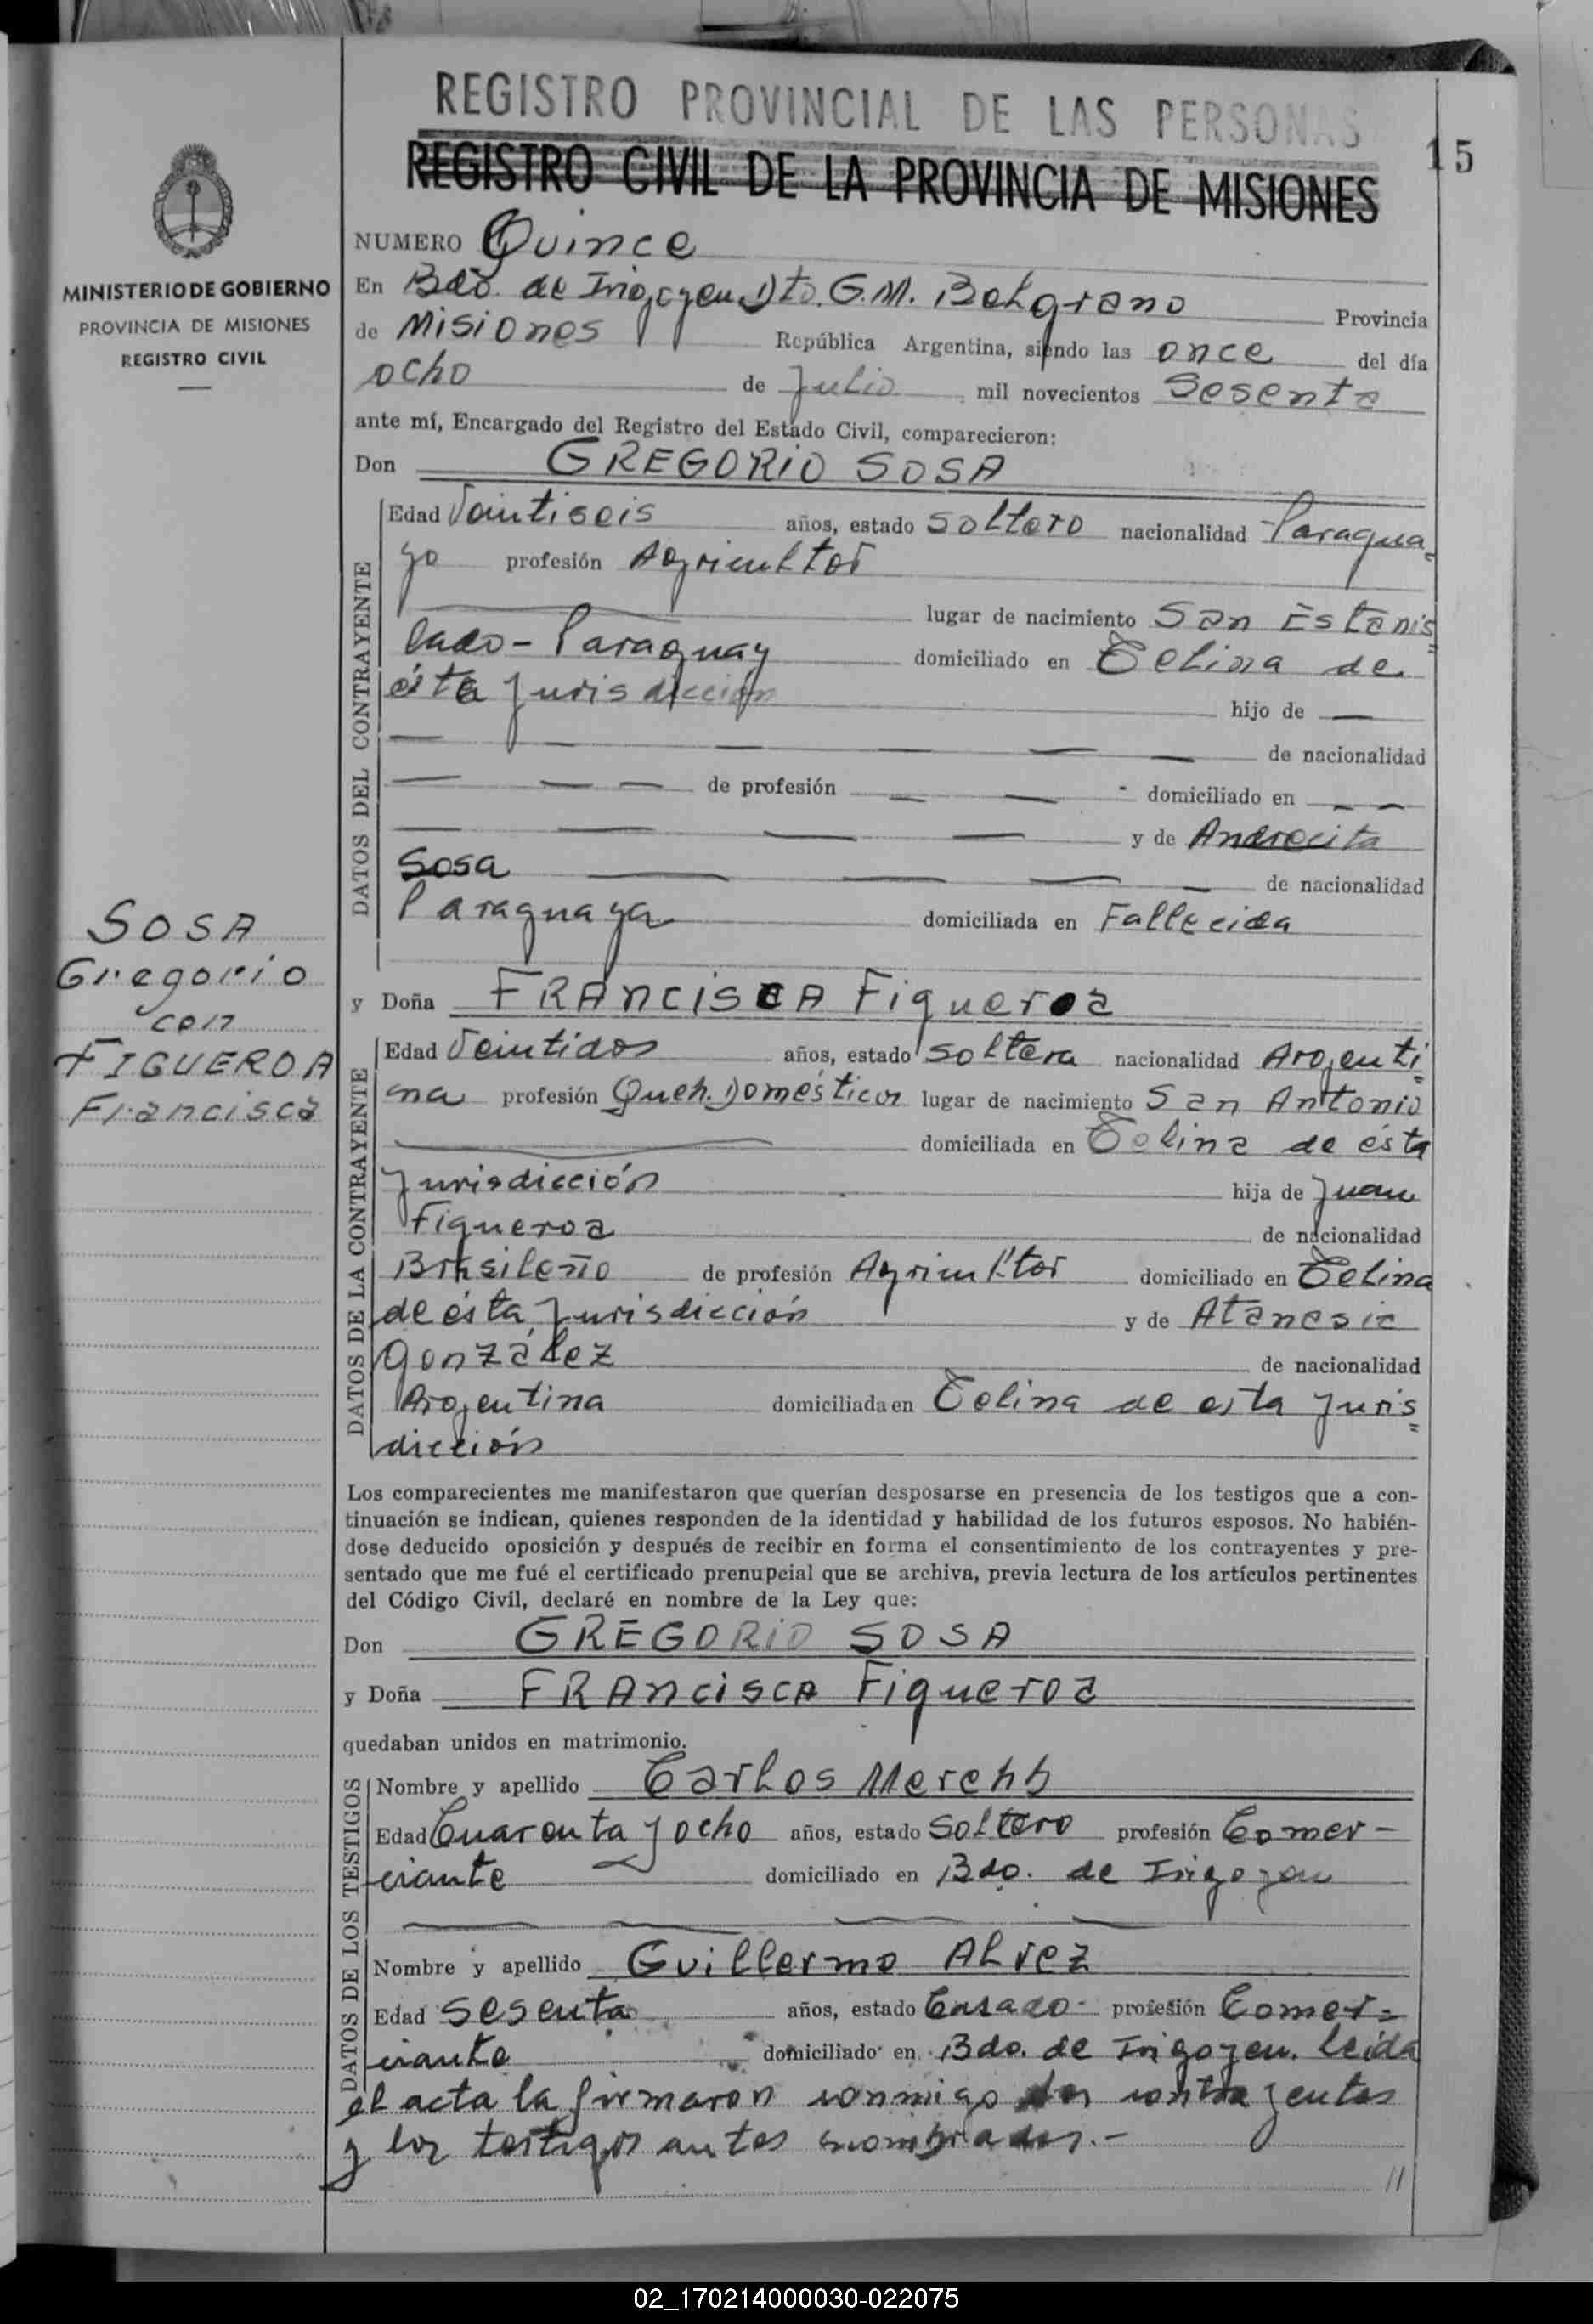 REGISTRO PROVINCIAL DE LAS PERSONAS
REGISTRO CIVIL DE LA PROVINCIA DE MISIONES
15
MINISTERIO DE GOBIERNO
PROVINCIA DE MISIONES
REGISTRO CIVIL
SOSA
Gregorio
con
FIGUEROA
Francisca
NUMERO Quince
En Bdo. de Irigoyen Dto. G.M. Belgrano Provincia
de Misiones República Argentina, siendo las once del día
ocho de Julio mil novecientos Sesenta
ante mí, Encargado del Registro del Estado Civil, comparecieron:
Don GREGORIO SOSA
DATOS DEL CONTRAYENTE
Edad Veintiseis años, estado Soltero nacionalidad Paragua=
yo profesión Agricultor
lugar de nacimiento San Estanis=
lado - Paraguay domiciliado en Celina de
ésta Jurisdicción hijo de —
— — — — — de nacionalidad
— — — de profesión — — - domiciliado en — —
— — — — y de Andrecita
Sosa — — — — de nacionalidad
Paraguaya domiciliada en Fallecida
y Doña FRANCISCA Figueroa
DATOS DE LA CONTRAYENTE
Edad Veintidos años, estado Soltera nacionalidad Argenti=
na profesión Queh. Domésticos lugar de nacimiento San Antonio
domiciliada en Celina de ésta
Jurisdicción hija de Juan
Figueroa de nacionalidad
Brasileño de profesión Agricultor domiciliado en Celina
de ésta Jurisdicción y de Atanasia
González de nacionalidad
Argentina domiciliada en Celina de esta Juris=
dicción
Los comparecientes me manifestaron que querían desposarse en presencia de los testigos que a con-
tinuación se indican, quienes responden de la identidad y habilidad de los futuros esposos. No habién-
dose deducido oposición y después de recibir en forma el consentimiento de los contrayentes y pre-
sentado que me fué el certificado prenupcial que se archiva, previa lectura de los artículos pertinentes
del Código Civil, declaré en nombre de la Ley que:
Don GREGORIO SOSA
y Doña FRANCISCA Figueroa
quedaban unidos en matrimonio.
DATOS DE LOS TESTIGOS
Nombre y apellido Carlos
Edad Cuarenta y ocho años, estado Soltero profesión Comer-
ciante domiciliado en Bdo. de Irigoyen
Nombre y apellido Guillermo Alvez
Edad Sesenta años, estado Casado - profesión Comer=
ciante domiciliado en Bdo. de Irigoyen. leída
el acta la firmaron conmigo los contrayentes
y los testigos antes nombrados.-
//
02_170214000030-022075